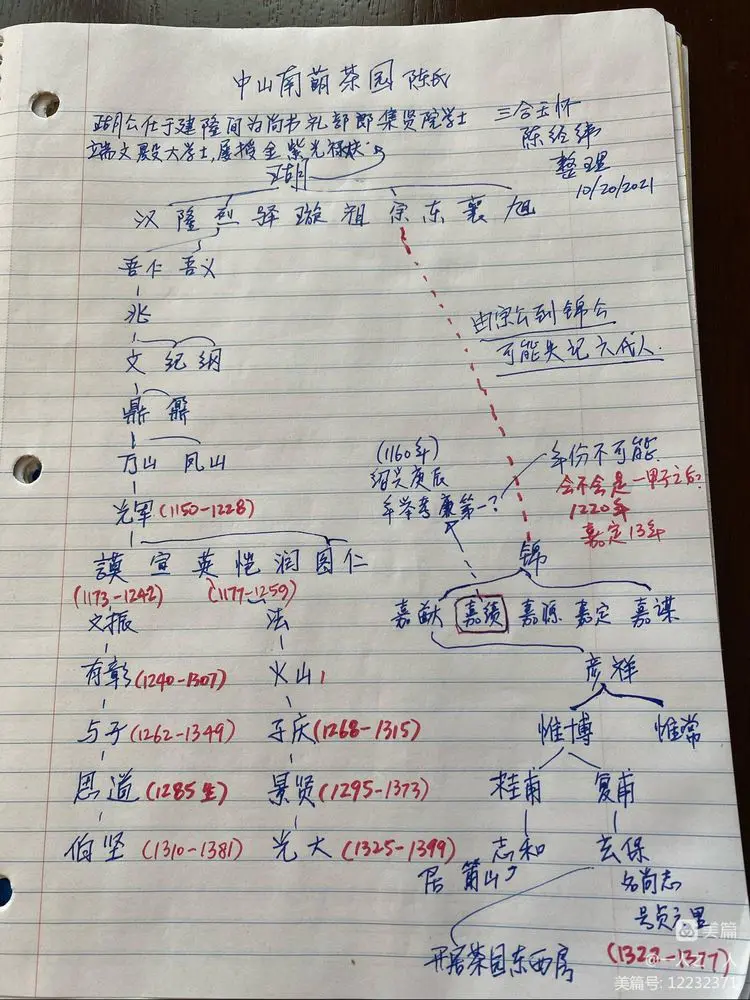 中山南萌茶园陈氏
瑚公仕于建隆间为尚书礼部郎集贤院学士
端文殿大学士,屡授金紫光禄大夫
三合王怀
陈经纬
整理
10/20/2021
瑚
汉 隆 烈 驿 璇 祖 宗 东 襄 旭
吾仁 吾义
兆
文 纪 纲
鼎 鼐
万山 凤山
光军 (1150-1228)
謨 宣 英 恺 润 图 仁
(1173-1242) (1177-1259)
文振 法
有彰 (1240-1307) 火山
与子 (1262-1349) 子庆 (1268-1315)
思道 (1285生) 景贤 (1295-1373)
伯坚 (1310-1381) 光大 (1325-1399)
由宗公到锦公
可能失记六代人.
(1160年)
绍兴庚辰
年举考廉第一?
年份不可能
会不会是一甲子之后?
1220年
嘉定13年
锦
嘉猷 嘉绩 嘉源 嘉定 嘉谋
彦祥
惟博 惟常
桂甫 复甫
志和 玄保
居 名尚志
开居茶园东西房
(1322-1377)
美篇
美篇号: 12232371